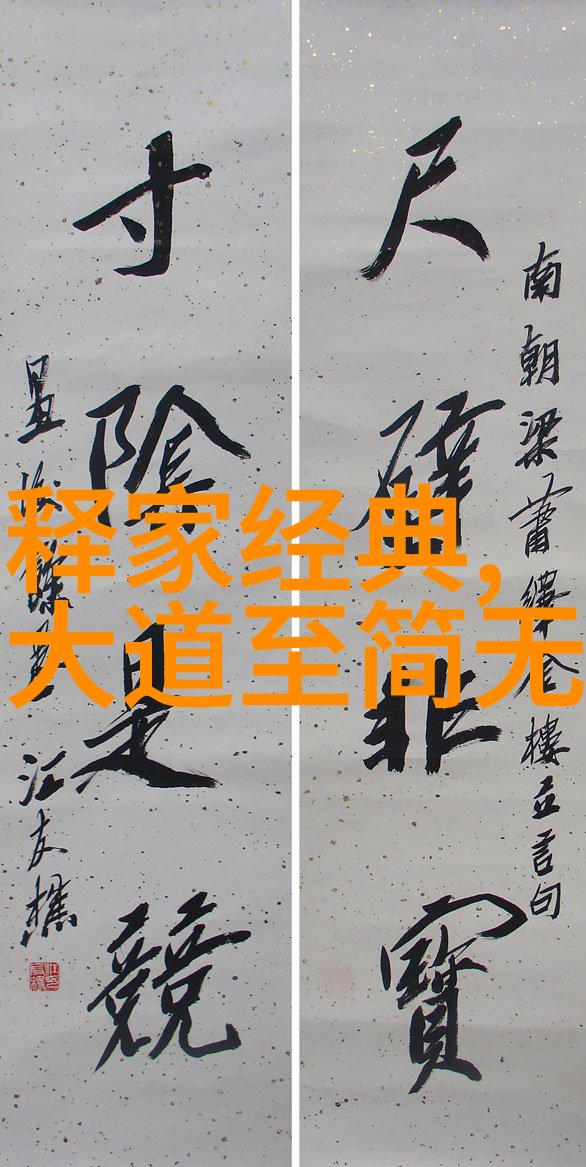 释家经典,
大道至简无
南朝梁蕭繹金樓立言句
尺璧非寶
寸陰是競
江友樵